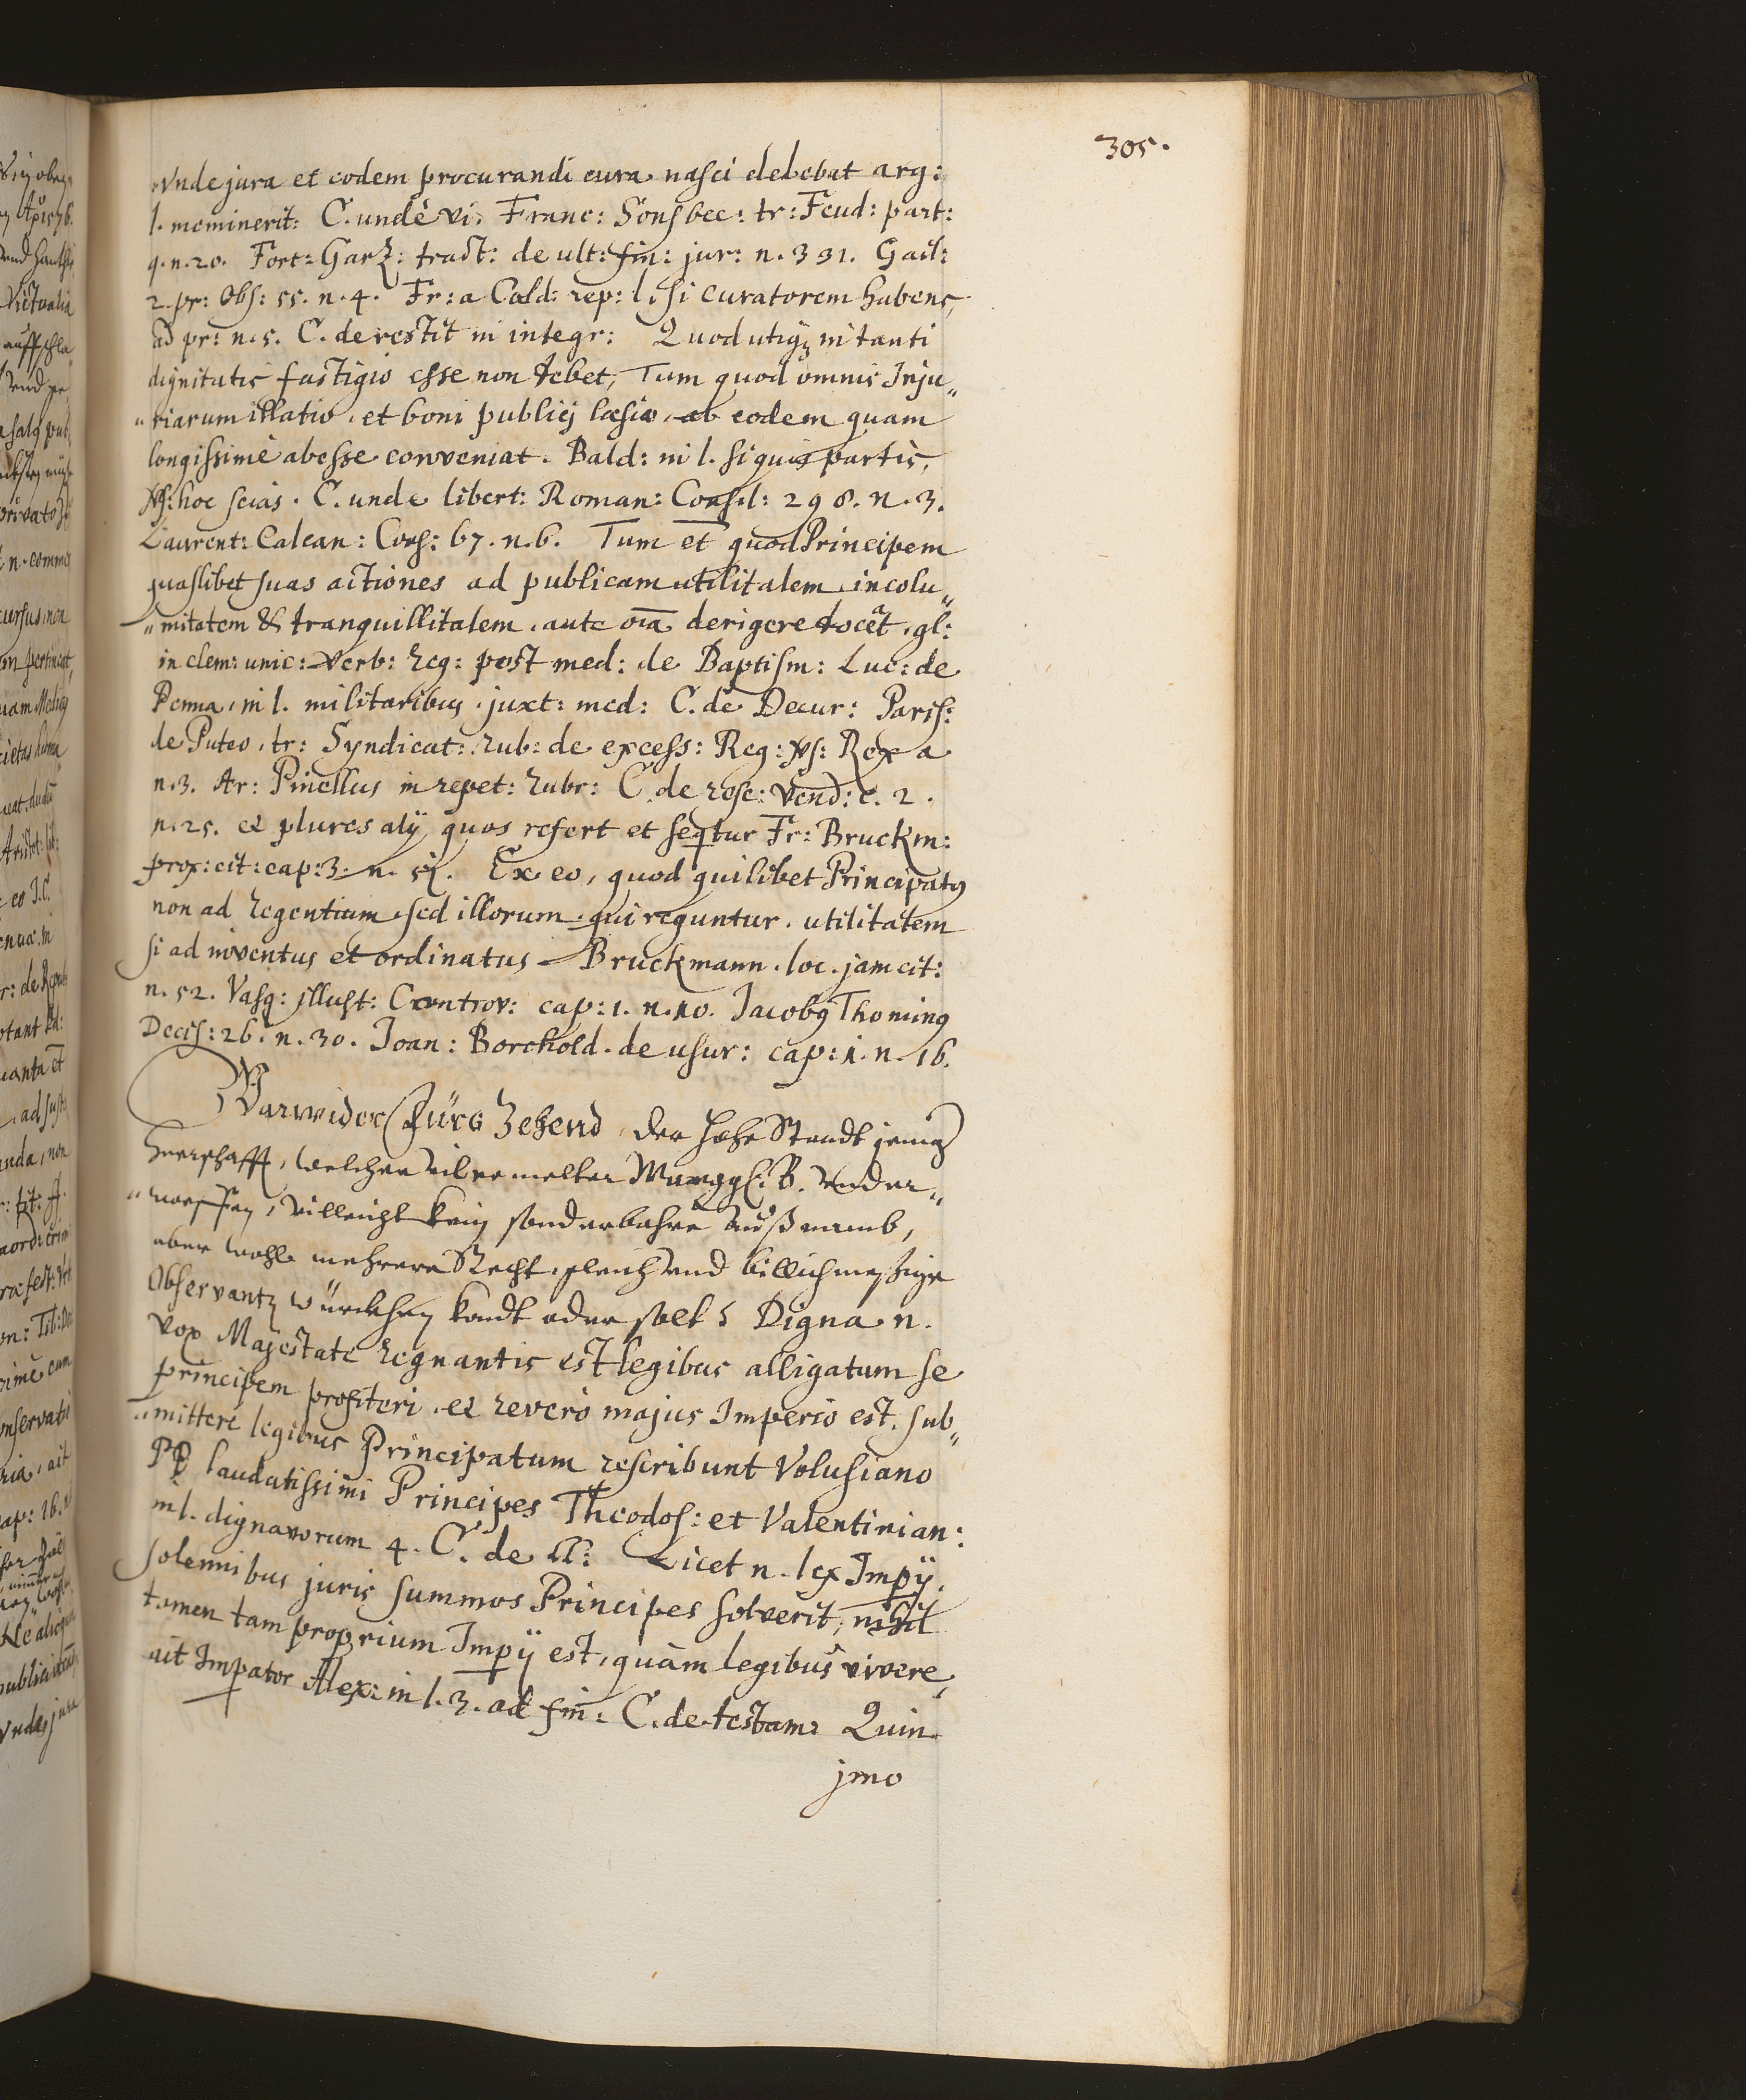 305.
Unde jura et eodem procurandi cura nasci debebat arg:
l. meminerit: C. unde vi. Franc: Sonsbec: tr: Feud: part:
9. n. 20. Fort: Garz: tract: de ult: fin: jur: n. 331. Gail:
2. pr: Obs: 55. n. 4. Fr: a Cald: rep: l. si curatorem habens,
ad pr: n. 5. C. de restit in integr: Quod utiqz in tanti
dignitatis fastigio esse non debet, Tum quod omnis Inju„
„riarum illatio, et boni publicj læsio, ab eodem quam
longissimè abesse conveniat. Bald: in l. si quis partis,
vs: hoc scias. C. unde libert: Roman: Consil: 298. n. 3.
Laurent: Calcan: Cons: 67. n. 6. Tum et quod Principem
quaslibet suas actiones ad publicam utilitatem incolu„
„mitatem & tranquillitatem, ante oīa derigere docēt, gl:
in clem: unic: Verb: Reg: post med: de Baptism: Luc: de
Penna, in l. militaribus, juxt: med: C. de Decur: Paris:
de Puteo, tr: Syndicat: Rub: de excess: Reg: vs: Rex a
n. 3. Ar: Pinellus in repet: Rubr: C. de resc: Vend: c. 2.
n. 25. et plures alÿ, quos refert et seqtur Fr: Bruckm:
prox: cit: cap: 3. n. 51. Ex eo, quod quilibet Principatq
non ad Regentium, sed illorum, qui reguntur, utilitatem
si ad inventus et ordinatus. Bruckmann. loc. jam cit:
n. 52. Vasq: illust: Controv: cap: 1. n. 10. Jacobq Thomingq
Decis: 26. n. 30. Joan: Borchold. de usur: cap: 1. n. 16.
Darwider Fürs Zehend, der hohe Standt jenig
herrschafft, welcher vilermelter Marggf: B. vnder„
„worffen, villeicht kein sonderbahre außnamb,
aber wohl mehrere Recht, gleich vnd billichmeßige
Observantz würckhen kondt oder solt, Digna n.
vox Majestate Regnantis est legibus alligatum se
principem profiteri, et revero majus Imperio est, sub„
„mittere legibus Principatum rescribunt Volusiano
PP laudatissimi Principes Theodos: et Valentinian:
in l. digna vorum 4. C. de ll: Licet n. lex Impÿ.
solennibus juris summos Principes solverit, nihil
tamen tam proprium Impÿ est, quàm legibus vivere,
ait Impator Alex: in l. 3. ad fin: C. de testam: Quin
jmo